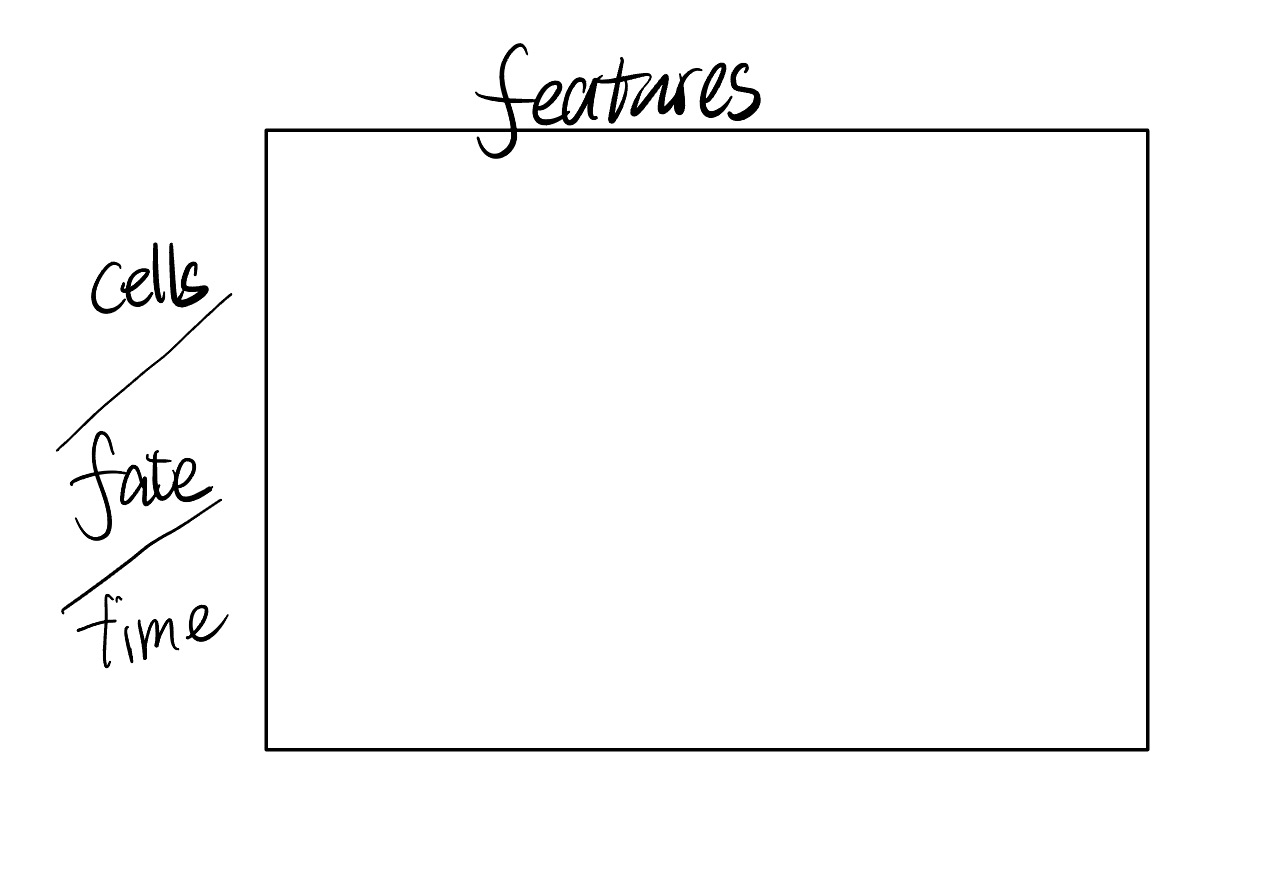 features
cells
fate
time